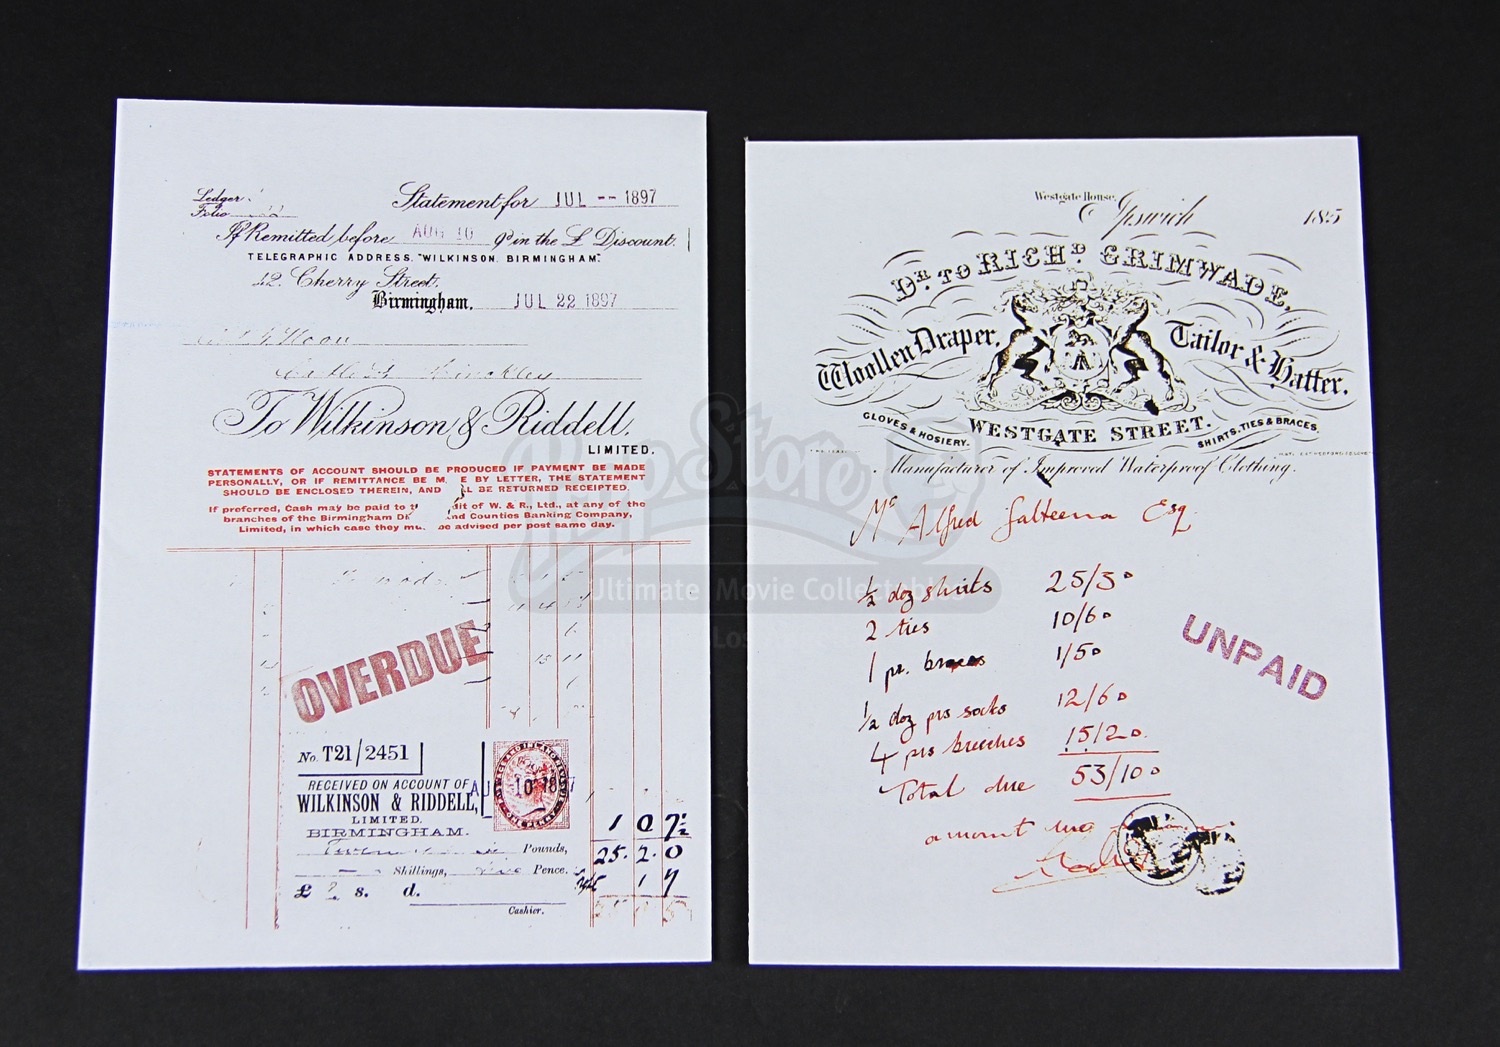 Ledger
Folio
Statement for JUL -- 1897
If Remitted before AUG 10 in the £ Discount.
TELEGRAPHIC ADDRESS, "WILKINSON, BIRMINGHAM".
42, Cherry Street,
Birmingham, JUL 22 1897
To Wilkinson & Riddell,
LIMITED.
STATEMENTS OF ACCOUNT SHOULD BE PRODUCED IF PAYMENT BE MADE
PERSONALLY, OR IF REMITTANCE BE M E BY LETTER, THE STATEMENT
SHOULD BE ENCLOSED THEREIN, AND LL BE RETURNED RECEIPTED.
If preferred, Cash may be paid to t dit of W. & R., Ltd., at any of the
branches of the Birmingham Di and Counties Banking Company,
Limited, in which case they mu be advised per post same day.
OVERDUE
No. T21/2451
RECEIVED ON ACCOUNT OF
WILKINSON & RIDDELL,
LIMITED.
BIRMINGHAM.
1 0 7½
Pounds, 25. 2. 0
Shillings, Pence. 1 7
£ s. d.
Cashier.
Westgate House,
Ipswich 185
Dr. TO RICHD. GRIMWADE,
Woollen Draper, Tailor & Hatter.
GLOVES & HOSIERY. WESTGATE STREET. SHIRTS, TIES & BRACES.
Manufacturer of Improved Waterproof Clothing.
Mr Alfred Salteena Esq
½ doz shirts 25/30
2 ties 10/60
1 pr. braces 1/50
½ doz prs socks 12/60
4 prs breeches 15/20.
Total due 53/100
amount due
UNPAID
Prop Store
Ultimate Movie Collectables